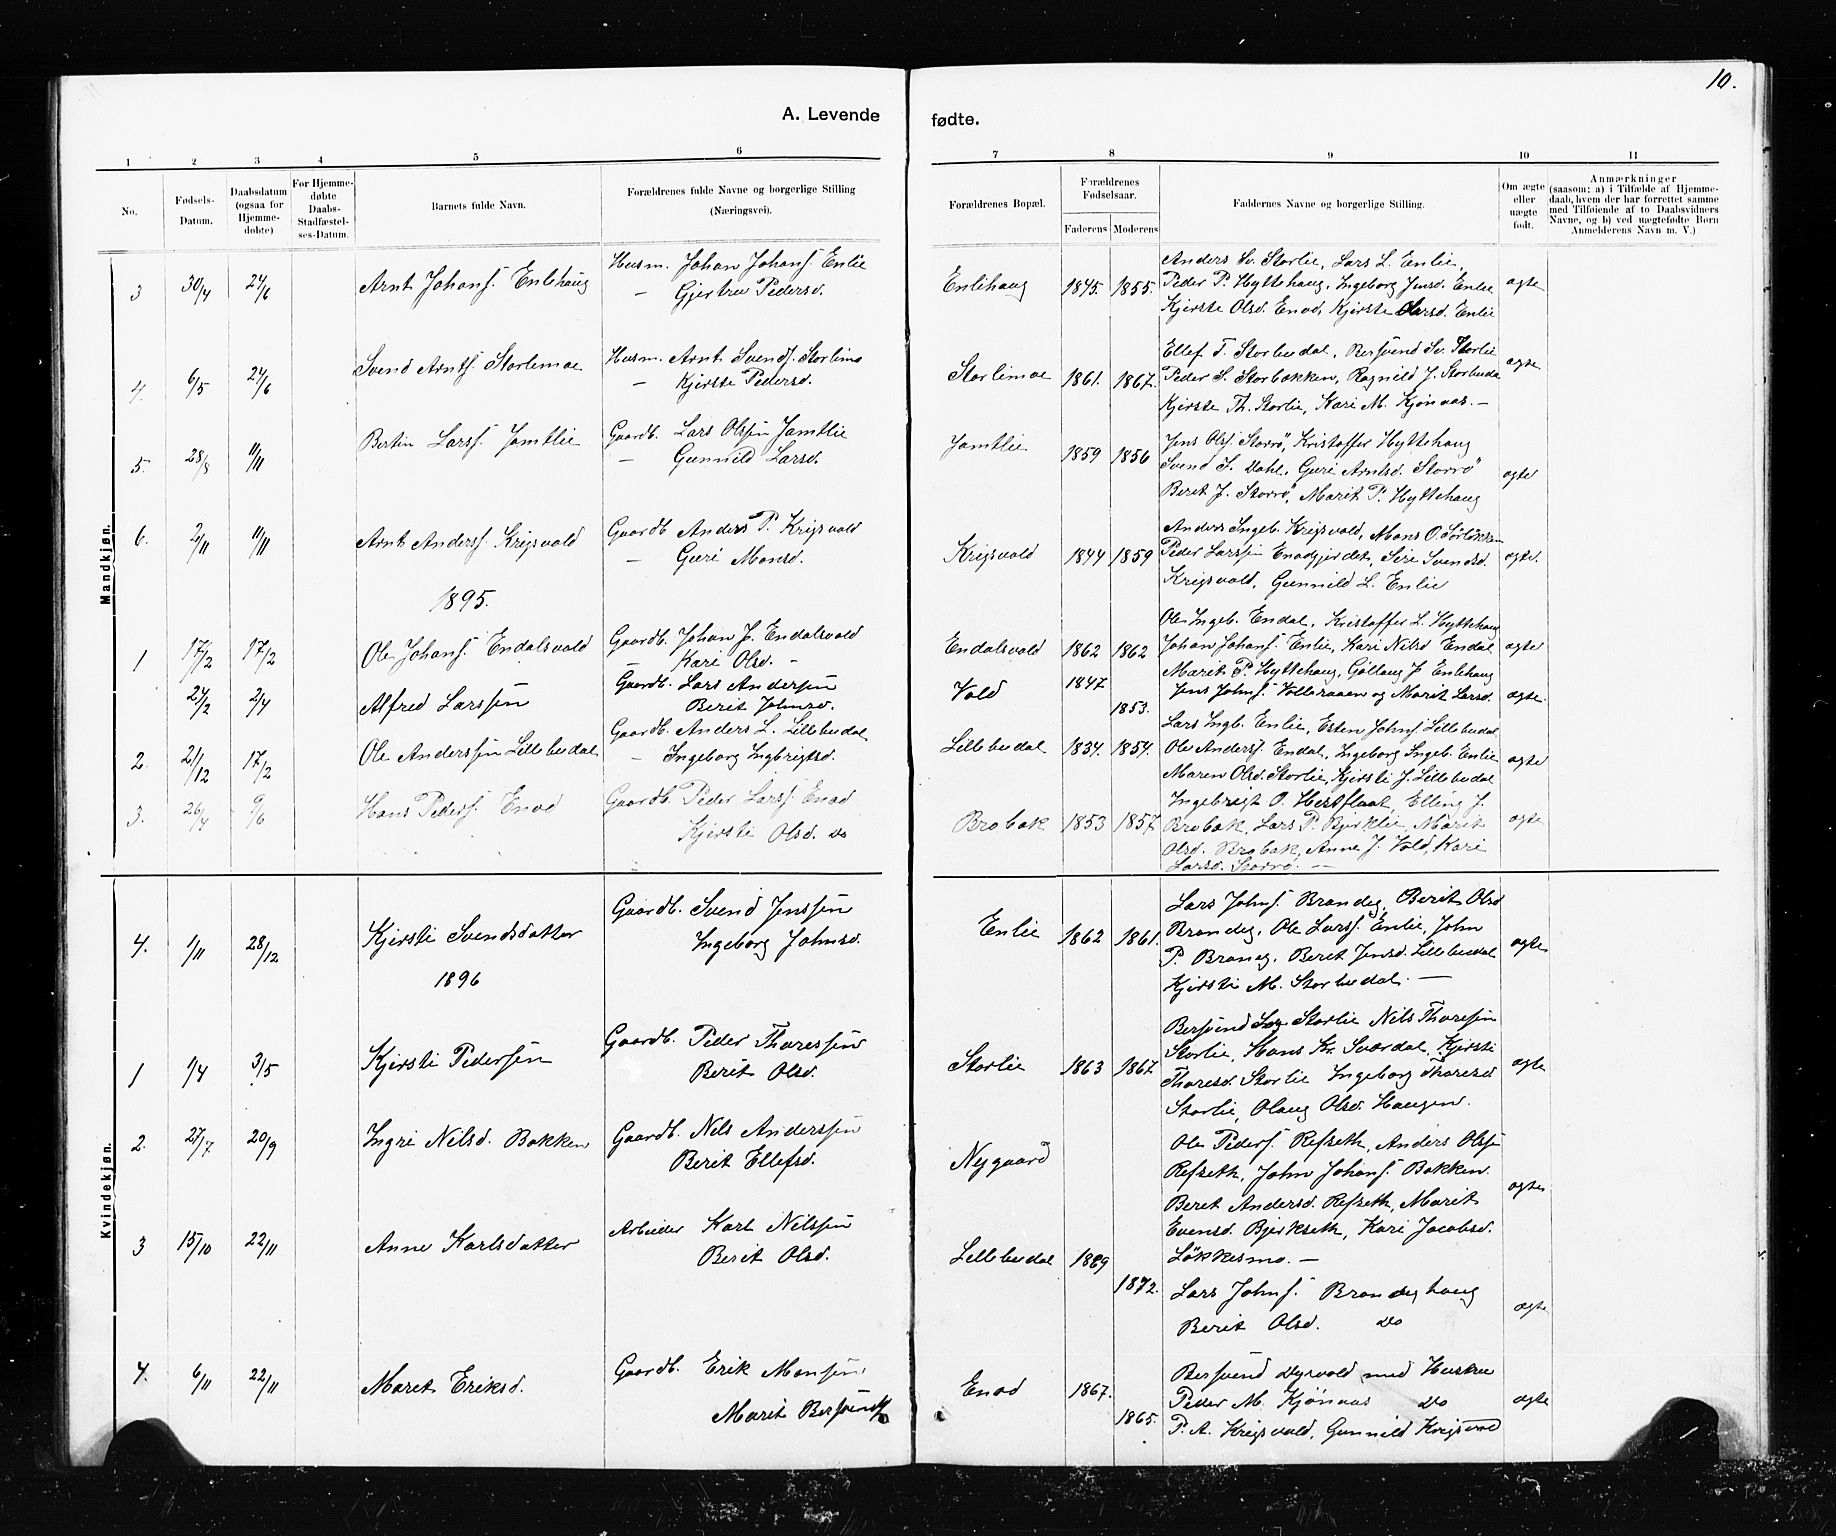 10.
A. Levende fødte.
1 2 3 4 5 6 7 8 9 10 11
No.
Fødsels-
Datum.
Daabsdatum
(ogsaa for
Hjemme-
døbte)
For Hjemme-
døbte
Daabs-
Stadfæstel-
ses-Datum.
Barnets fulde Navn.
Forældrenes fulde Navne og borgerlige Stilling
(Næringsvei).
Forældrenes Bopæl.
Forældrenes
Fødselsaar.
Faderens Moderens
Faddernes Navne og borgerlige Stilling.
Om ægte
eller
uægte
født.
Anmærkninger
(saasom: a) i Tilfælde af Hjemme-
daab, hvem der har forrettet samme
med Tilføiende af to Daabsvidners
Navne, og b) ved uægtefødte Børn
Anmelderens Navn m. V.)
Mandkjøn.
3 30/4 24/6 Arnt Johansf. Enlihaug
Husm. Johan Johansf. Enlie
— Gjertru Pedersd.
Enlihaug 1845. 1855.
Anders Sv. Storlie, Lars L. Enlie,
Peder P. Hyttehaug, Ingeborg Jensd. Enlie
Kjerste Olsd. Enod, Kjerste Larsd. Enlie
ægte
4. 6/5 24/6 Svend Arntsf. Storlimoe
Husm. Arnt Svendsf. Storlimo
— Kjerste Pedersd.
Storlimoe 1861. 1867.
Ellef T. Storbudal, Bersvend Sv. Storlie
Peder S. Storbækken, Ragnild J. Storbudal
Kjerste Th. Storlie, Kari M. Kjønaas. —
ægte
5. 28/8 11/11 Bertin Larsf. Jamtlie
Gaardb. Lars Olssen Jamtlie
— Gunnild Larsd.
Jamtlie 1859 1856
Jens Olsf. Storrø, Kristoffer Hyttehaug
Svend S. Dahl, Guri Arntsd. Storrø
Berit J. Storrø, Marit P. Hyttehaug
ægte
6. 2/11 11/11 Arnt Andersf. Krigsvold
Gaardb. Anders P. Krigsvold
— Guri Monsd.
Krigsvold 1844 1859
Anders Ingeb. Krigsvold, Mons O.
Peder Larssen Enodgjerdet, Siri Svendsd.
Krigsvold, Gunnild L. Enlie
ægte.
1895.
1 17/2 17/2 Ole Johansf. Endalsvold
Gaardb. Johan J. Endalsvold
Kari Olsd. —
Endalsvold 1862 1862
Ole Ingeb. Endal, Kristoffer L. Hyttehaug
Johan Johansf. Enlie, Kari Nilsd Endal
Marit P. Hyttehaug, J. Enlihaug
ægte
24/2 2/4 Alfred Larssen
Gaardb. Lars Andersen
Berit Johnsd.
Vold 1847 1853.
Jens Johnsf. Volleraaen og Marit Larsd.
ægte.
2. 21/12 17/2 Ole Anderssen Lillebudal
Gaardb. Anders L. Lillebudal
— Ingeborg Ingbrigtsd.
Lillebudal 1834. 1854.
Lars Ingb. Enlie, Esten Johnsf. Lillebudal
Ole Andersf. Endal, Ingeborg Ingeb. Enlie
Maren Olsd. Storlie, Kjersti J. Lillebudal
ægte
3. 26/4 9/6 Hans Pedersf. Enod
Gaardb. Peder Larsf. Enod
Kjersti Olsd. do
Brobak 1853 1857.
Ingebrigt O. Hestflaat, Elling J.
Brobak, Lars P. Bjerklie, Marit
Olsd. Brobak, Anne J. Vold, Kari
Larsd. Storrø. —
ægte
Kvindekjøn.
4. 1/11 28/12 Kjersti Svendsdatter
Gaardb. Svend Jenssen
Ingeborg Johnsd.
Enlie 1862 1861.
Lars Johnsf. Brandeg, Berit Olsd
Brandeg, Ole Larsf. Enlie, John
P. Braneg, Berit Jensd. Lillebudal
Kjersti M. Storbudal. —
ægte
1896
1 1/4 3/5 Kjersti Pedersen
Gaardb. Peder Thoressen
Berit Olsd.
Storlie 1863 1867.
Bersvend Storlie Nils Thoresen
Storlie, Hans Kr. Sværdal, Kjersti
Thoresd. Storlie Ingeborg Thoresd
Storlie, Olaug Olsd. Haugen.
ægte
2. 27/7 20/9 Ingri Nilsd. Bakken
Gaardb. Nils Anderssen
Berit Ellefsd.
Nygaard
Ole Pedersf. Refseth, Anders Olsen
Refseth, John Johansf. Bakken.
Beret Andersd. Refseth, Marit
Evensd. Bjerkseth, Kari Jacobsd.
Løkkesmo. —
ægte
3 15/10 22/11 Anne Karlsdatter
Arbeider Karl Nilssen
Berit Olsd.
Lillebudal 1869 1872.
Lars Johnsf. Brandeghaug
Berit Olsd. do
ægte
4. 6/11 22/11 Maret Eriksd.
Gaardb. Erik Monsen
Marit Bersvendsd.
Enod 1867. 1865.
Bersvend Dyrvold med Hustru
Peder M. Kjønaas do
P. A. Krigsvold, Gunnild Krigsvold
ægte